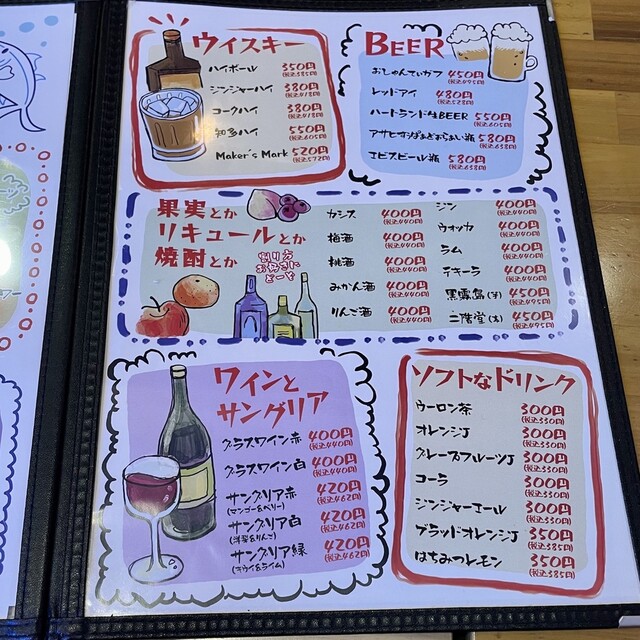 ウイスキー
ハイボール 350円
(税込385円)
ジンジャーハイ 380円
(税込418円)
コークハイ 380円
(税込418円)
知多ハイ 550円
(税込605円)
Maker's Mark 520円
(税込572円)
BEER
450円
(税込495円)
レッドアイ 480円
(税込528円)
ハートランド生BEER 550円
(税込605円)
580円
(税込638円)
エビスビール瓶 580円
(税込638円)
果実とか
リキュールとか
焼酎とか
割り方
お好きに
どーぞ
カシス 400円
(税込440円)
梅酒 400円
(税込440円)
桃酒 400円
(税込440円)
みかん酒 400円
(税込440円)
りんご酒 400円
(税込440円)
ジン 400円
(税込440円)
ウォッカ 400円
(税込440円)
ラム 400円
(税込440円)
テキーラ 400円
(税込440円)
黒霧島(芋) 450円
(税込495円)
二階堂(麦) 450円
(税込495円)
ワインと
サングリア
グラスワイン赤 400円
(税込440円)
グラスワイン白 400円
(税込440円)
サングリア赤 420円
(マンゴー&ベリー) (税込462円)
サングリア白 420円
(洋梨&りんご) (税込462円)
サングリア緑 420円
(キウイ&ライム) (税込462円)
ソフトなドリンク
ウーロン茶 300円
(税込330円)
オレンジJ 300円
(税込330円)
グレープフルーツJ 300円
(税込330円)
コーラ 300円
(税込330円)
ジンジャーエール 300円
(税込330円)
ブラッドオレンジJ 350円
(税込385円)
はちみつレモン 350円
(税込385円)